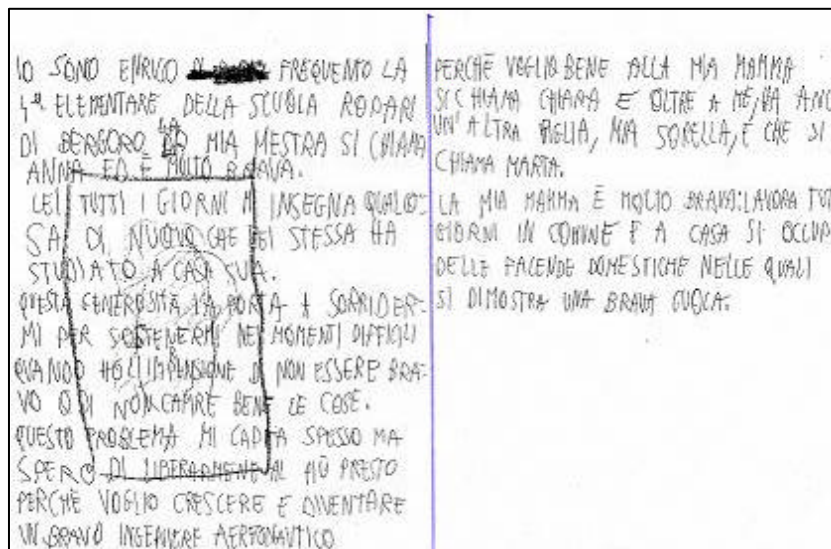 IO SONO ENRICO FREQUENTO LA
4ª ELEMENTARE DELLA SCUOLA RODARI
DI BERGORO LA MIA MESTRA SI CHIAMA
ANNA ED È MOLTO BRAVA.
LEI TUTTI I GIORNI MI INSEGNA QUALCO-
SA DI NUOVO CHE LEI STESSA HA
STUDIATO A CASA SUA.
QUESTA GENEROSITÀ LA PORTA A SORRIDER-
MI PER SOSTENERMI NEI MOMENTI DIFFICILI
QUANDO HO L'IMPENSIONE DI NON ESSERE BRA-
VO O DI NON CAPIRE BENE LE COSE.
QUESTO PROBLEMA MI CAPITA SPESSO MA
SPERO DI LIBERARMENE AL PIÙ PRESTO
PERCHÈ VOGLIO CRESCERE E DIVENTARE
UN BRAVO INGENIERE AEREONAUTICO
PERCHÈ VOGLIO BENE ALLA MIA MAMMA
SI CHIAMA CHIARA E OLTRE A ME, HA ANC
UN'ALTRA FIGLIA, MIA SORELLA, E CHE SI
CHIAMA MARTA.
LA MIA MAMMA È MOLTO BRAVA: LAVORA TUT
GIORNI IN COMUNE E A CASA SI OCCUP
DELLE FACENDE DOMESTICHE NELLE QUALI
SI DIMOSTRA UNA BRAVA CUOCA.